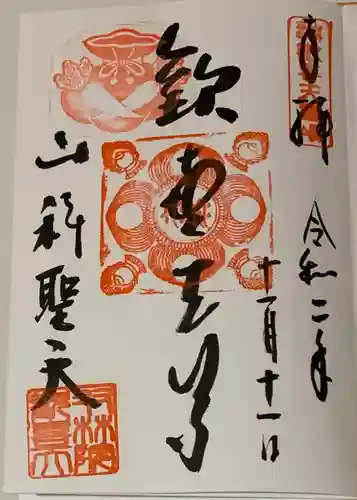 奉拝
令和二年
十一月十一日
歓喜天尊
山科聖天